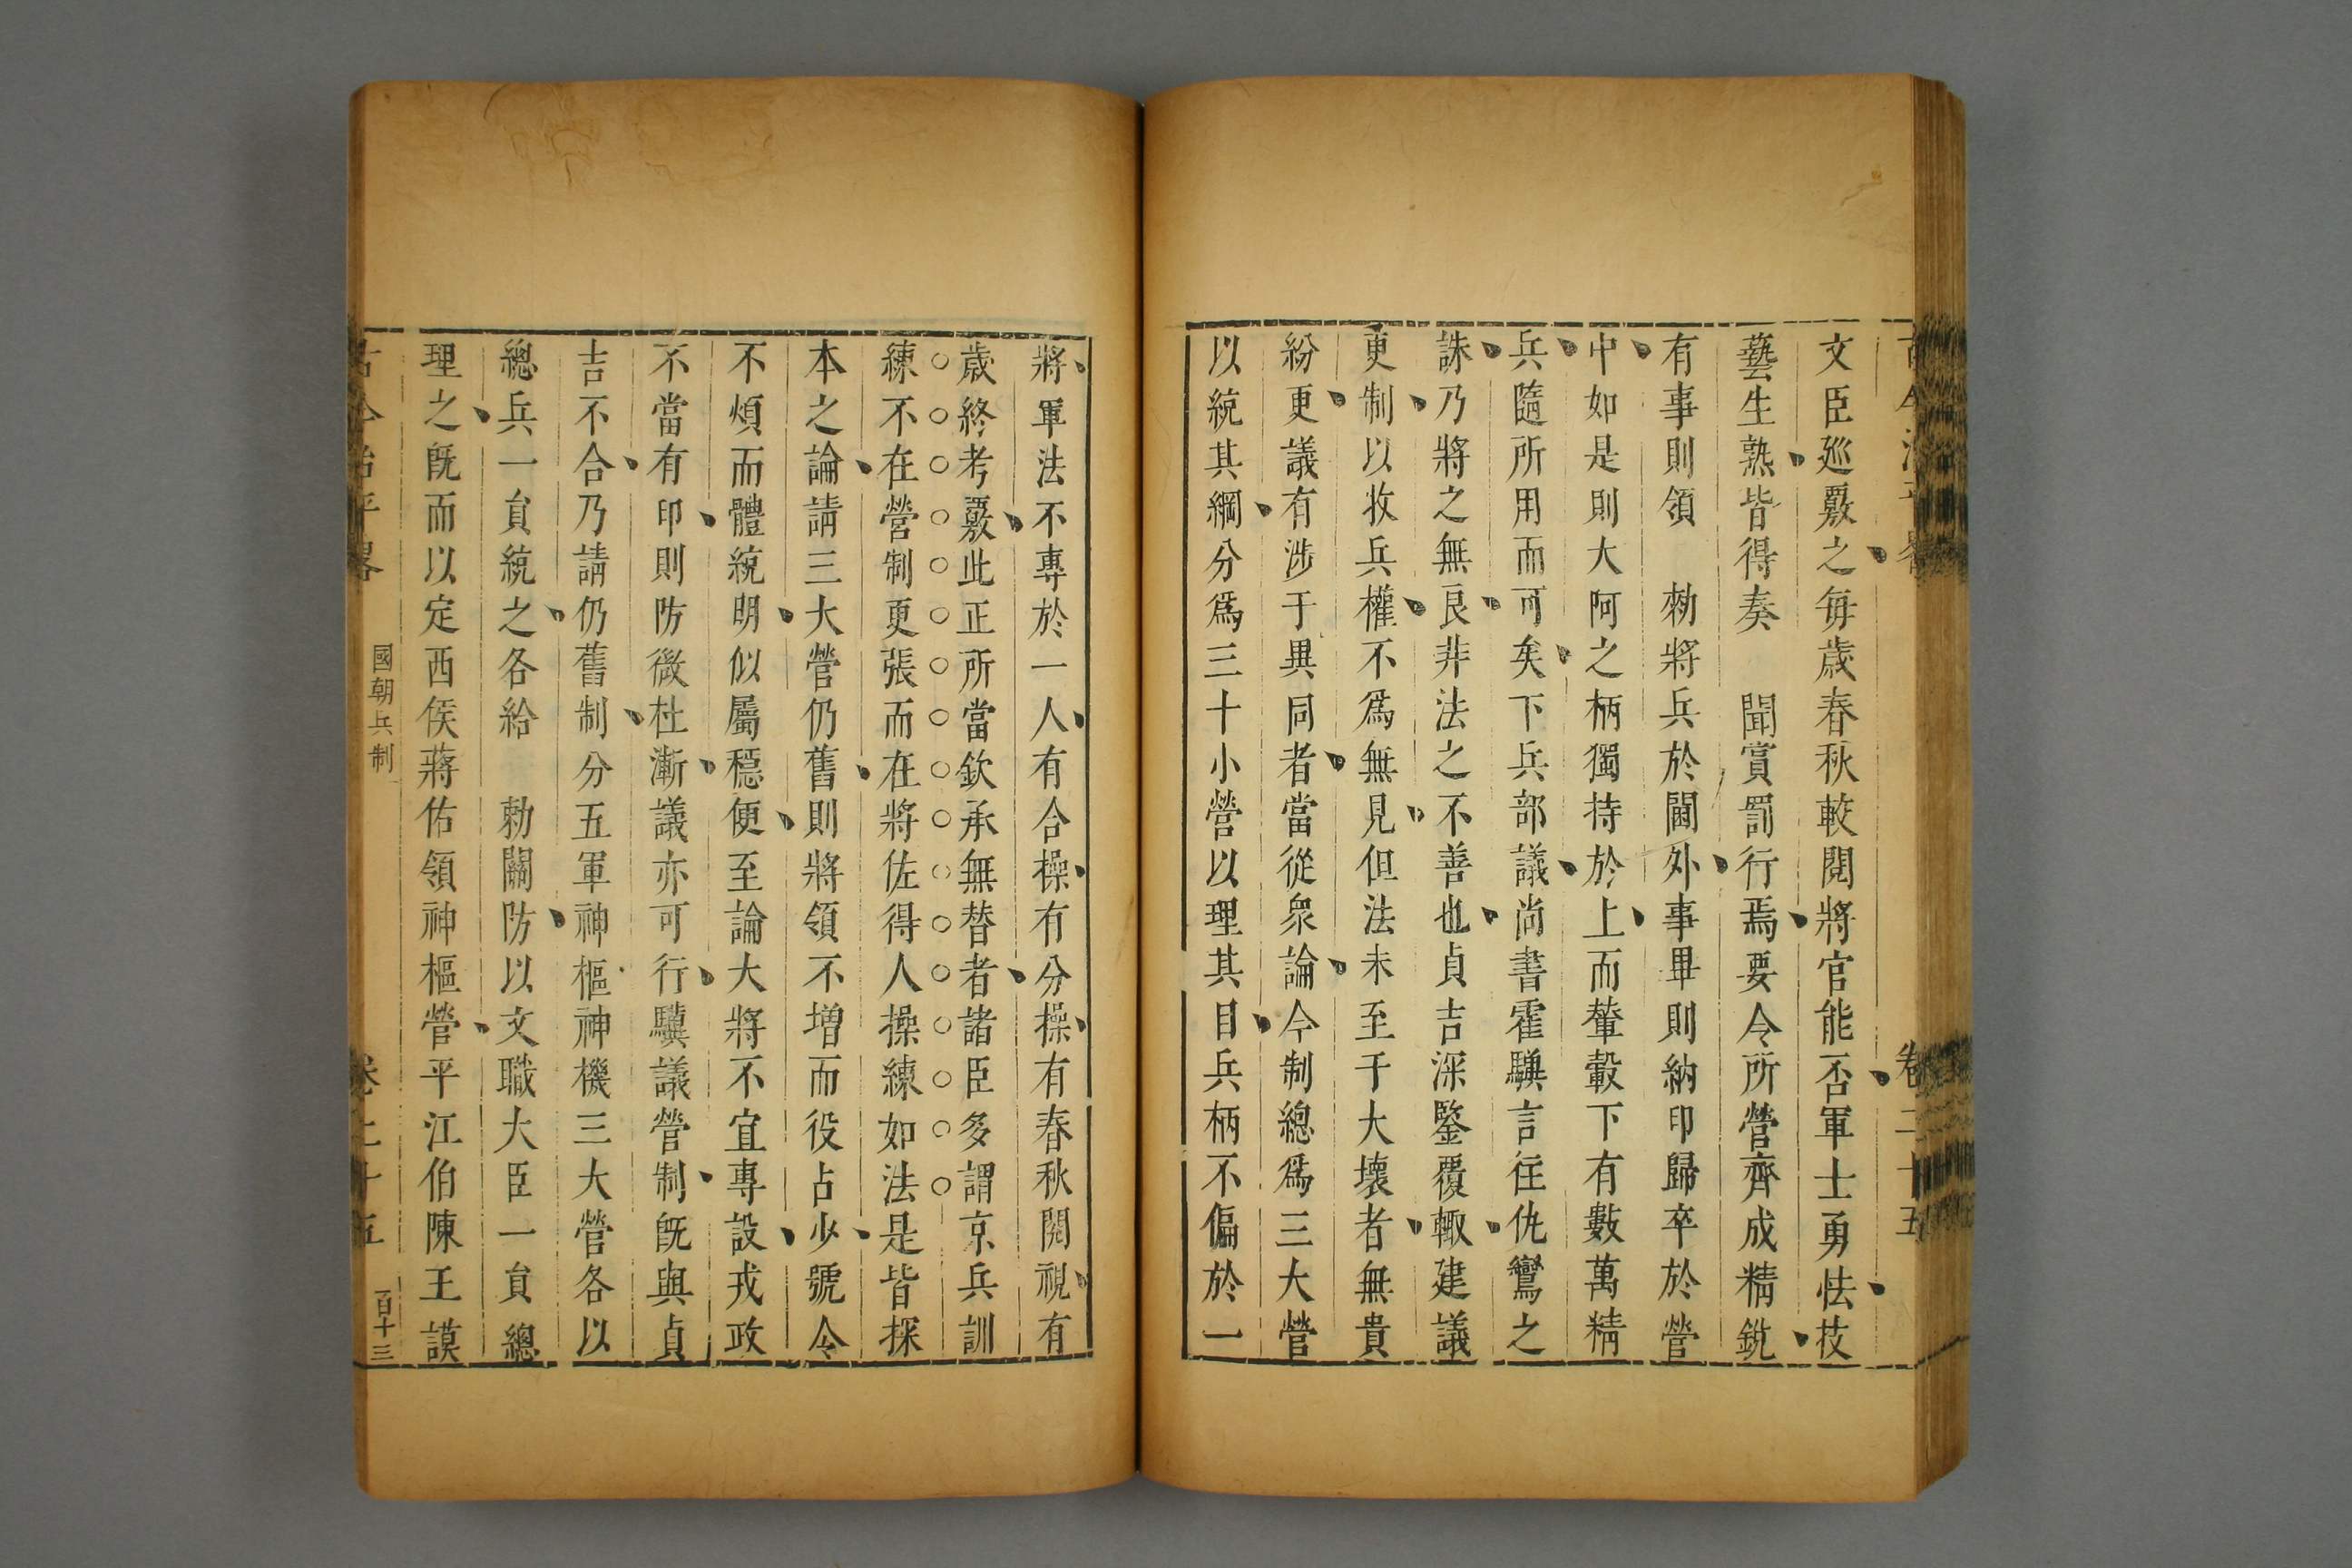 文臣廵覈之每歲春秋較閱將官能否軍士勇怯技
藝生熟皆得奏 聞賞罰行焉要令所營齊成精銳
有事則領 勑將兵於閫外事畢則納印歸卒於營
中如是則大阿之柄獨持於上而輦轂下有數萬精
兵隨所用而可矣下兵部議尚書霍驥言往仇鸞之
誅乃將之無良非法之不善也貞吉深鑒覆轍建議
更制以收兵權不爲無見但法未至于大壞者無貴
紛更議有涉于異同者當從衆論今制總爲三大營
以統其綱分爲三十小營以理其目兵柄不偏於一
將軍法不專於一人有合操有分操有春秋閱視有
歲終考覈此正所當欽承無替者諸臣多謂京兵訓
練不在營制更張而在將佐得人操練如法是皆探
本之論請三大營仍舊則將領不增而役占少號令
不煩而體統明似屬穩便至論大將不宜專設戎政
不當有印則防微杜漸議亦可行驥議營制既與貞
吉不合乃請仍舊制分五軍神樞神機三大營各以
總兵一貟統之各給 勑關防以文職大臣一貟總
理之既而以定西侯蔣佑領神樞營平江伯陳王謨
古今治平畧 國朝兵制 卷二十五 百十三